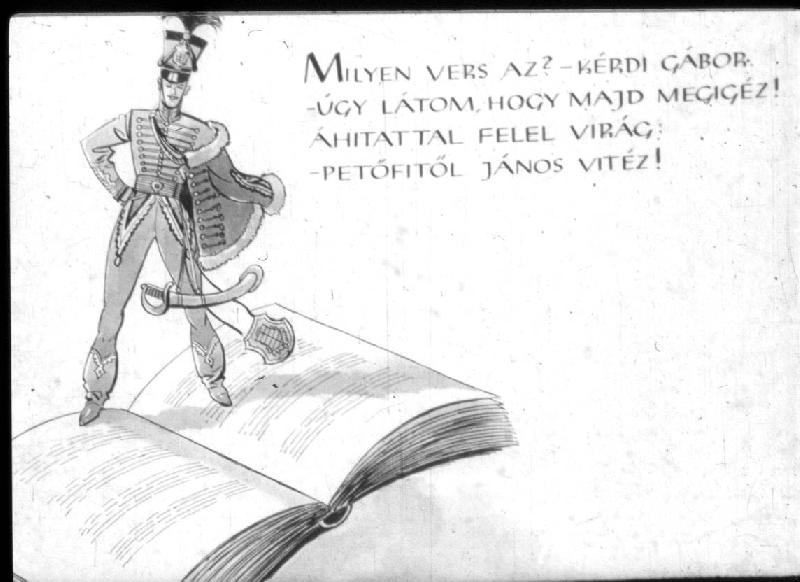 MILYEN VERS AZ? - KÉRDI GÁBOR.
-ÚGY LÁTOM, HOGY MAJD MEGIGÉZ!
ÁHITATTAL FELEL VIRÁG:
-PETŐFITŐL JÁNOS VITÉZ!